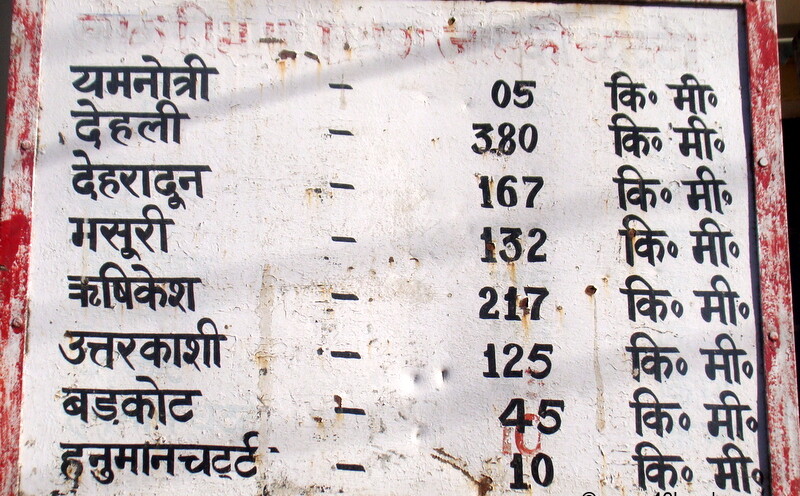 यमनोत्री – 05 कि॰ मी॰
देहली – 380 कि॰ मी॰
देहरादून – 167 कि॰ मी॰
मसूरी – 132 कि॰ मी॰
ऋषिकेश – 217 कि॰ मी॰
उत्तरकाशी – 125 कि॰ मी॰
बड़कोट – 45 कि॰ मी॰
हनुमानचट्टी – 10 कि॰ मी॰